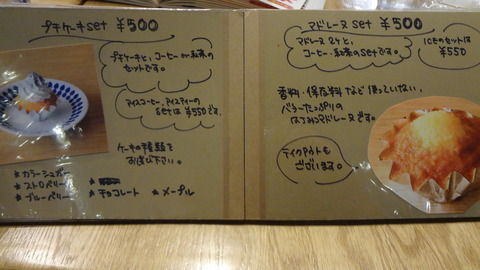 プチケーキset ¥500
プチケーキと、コーヒーか紅茶の
セットです。
アイスコーヒー、アイスティーの
setは ¥550です。
ケーキの種類を
お選び下さい。
* カラーシュガー
* ストロベリー
* ブルーベリー
* チョコレート
* メープル
マドレーヌ set ¥500
マドレーヌ 2ケと
コーヒー・紅茶のsetです。
ICEのセットは
¥550
香料・保存料など使っていない、
バターたっぷりの
はちみつマドレーヌです。
テイクアウトも
ございます。